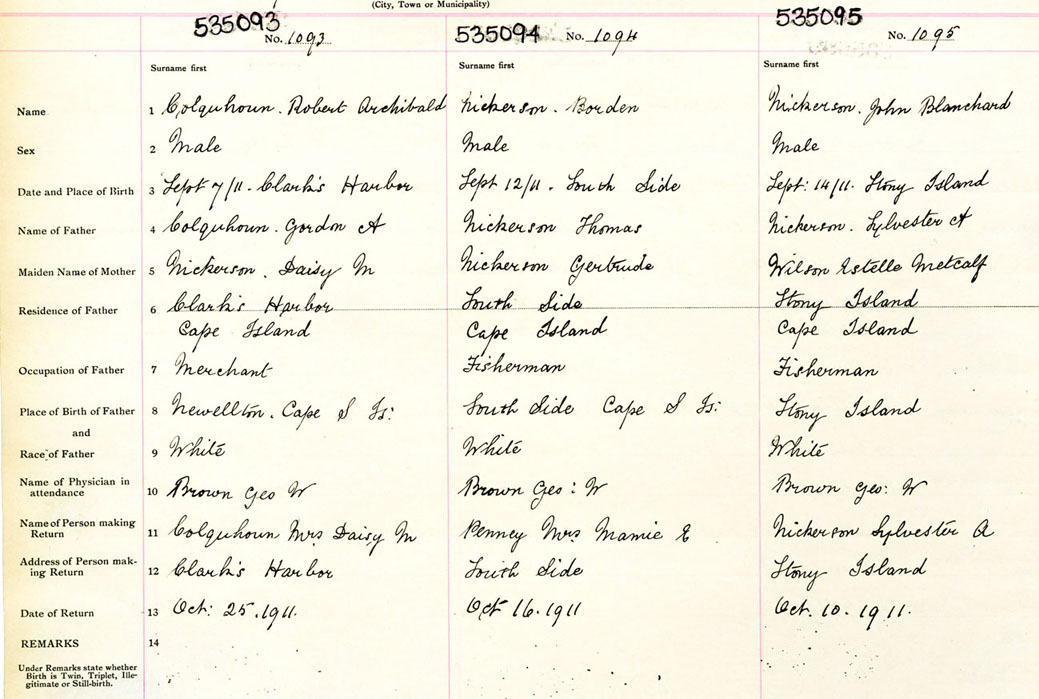 (City, Town or Municipality)
535093 535094 535095
No. 1093 No. 1094 No. 1095
Surname first Surname first Surname first
Name 1 Colquhoun. Robert Archibald Nickerson. Borden Nickerson. John Blanchard
Sex 2 Male Male Male
Date and Place of Birth 3 Sept 7/11. Clark's Harbor Sept 12/11. South Side Sept: 14/11. Stony Island
Name of Father 4 Colquhoun. Gordon A Nickerson Thomas Nickerson. Sylvester A
Maiden Name of Mother 5 Nickerson. Daisy M Nickerson Gertrude Wilson Estelle Metcalf
Residence of Father 6 Clark's Harbor South Side Stony Island
Cape Island Cape Island Cape Island
Occupation of Father 7 Merchant Fisherman Fisherman
Place of Birth of Father 8 Newellton. Cape S Is: South Side Cape S Is: Stony Island
and
Race of Father 9 White White White
Name of Physician in
attendance 10 Brown Geo W Brown Geo: W Brown Geo: W
Name of Person making
Return 11 Colquhoun Mrs Daisy M Penney Mrs Mamie E Nickerson Sylvester A
Address of Person mak-
ing Return 12 Clark's Harbor South Side Stony Island
Date of Return 13 Oct: 25. 1911. Oct 16. 1911 Oct. 10. 1911.
REMARKS 14
Under Remarks state whether
Birth is Twin, Triplet, Ille-
gitimate or Still-birth.